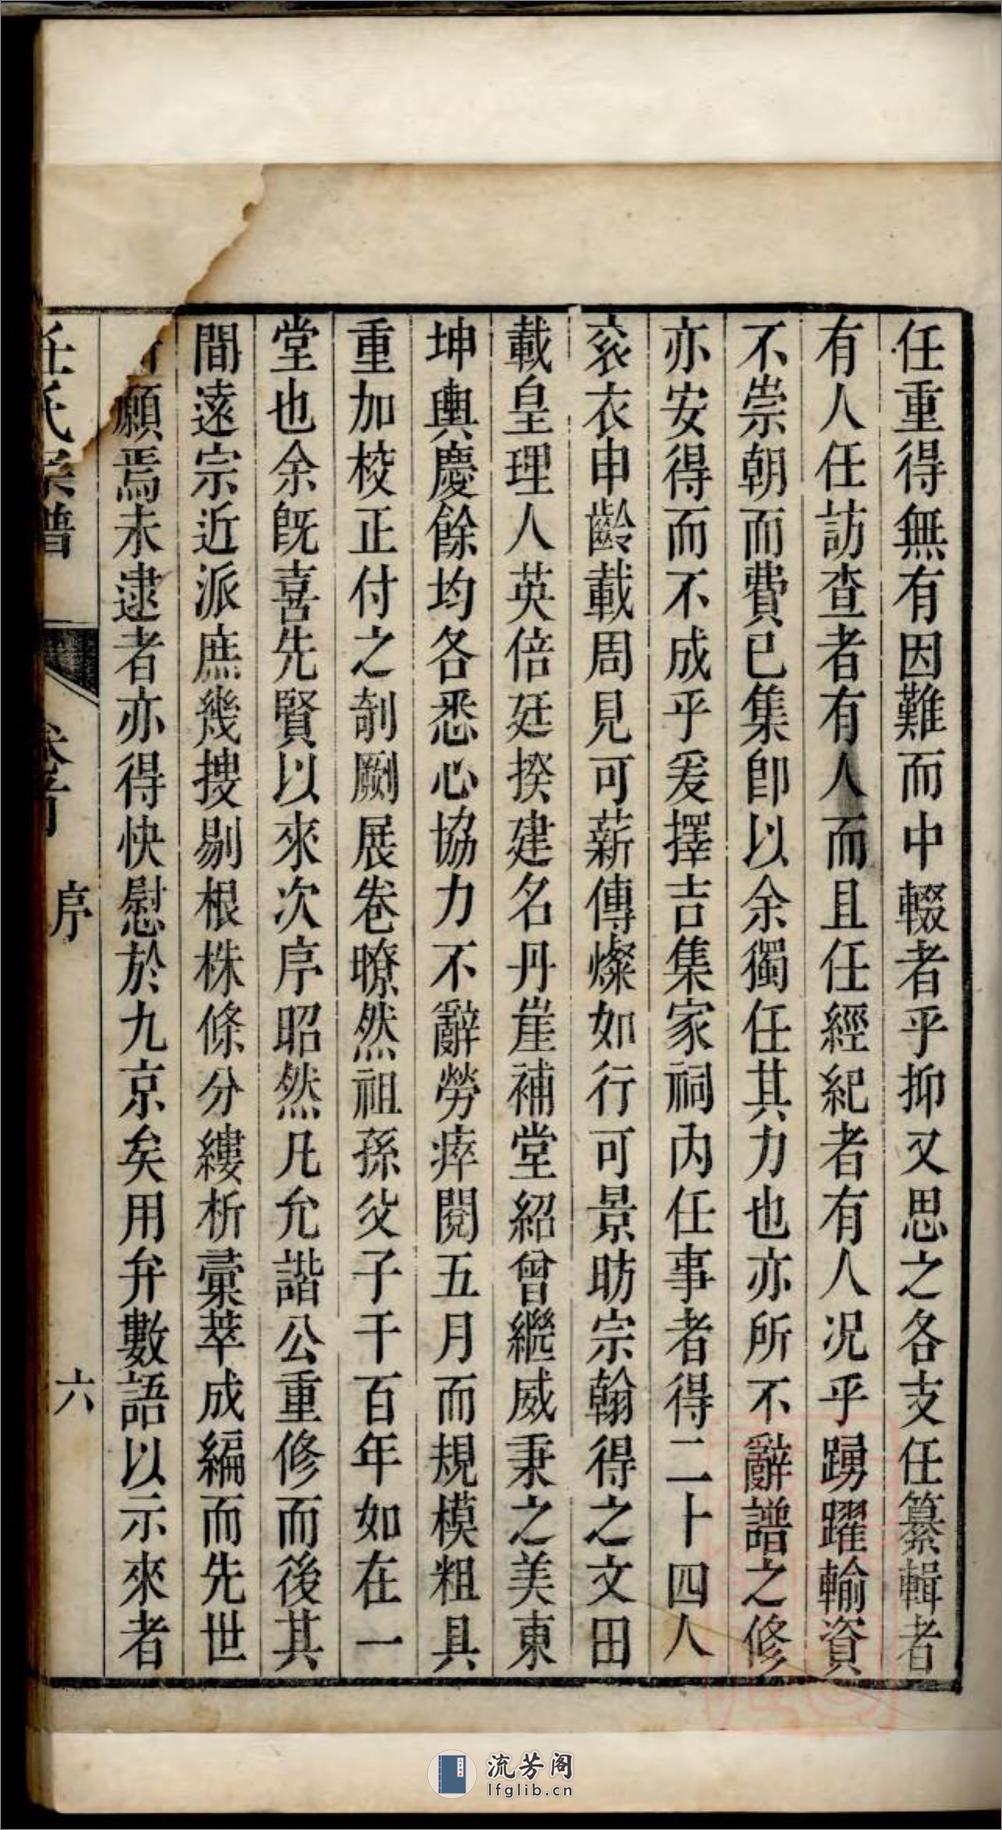 任重得無有因難而中輟者乎抑又思之各支任纂輯者
有人任訪查者有人而且任經紀者有人況乎踴躍輸資
不崇朝而費已集卽以余獨任其力也亦所不辭譜之修
亦安得而不成乎爰擇吉集家祠內任事者得二十四人
衮衣申齡載周見可薪傳燦如行可景昉宗翰得之文田
載皇理人英倍廷揆建名丹崖補堂紹曾繼威秉之美東
坤輿慶餘均各悉心協力不辭勞瘁閱五月而規模粗具
重加校正付之剞劂展卷瞭然祖孫父子千百年如在一
堂也余旣喜先賢以來次序昭然凡允諧公重修而後其
間遠宗近派庶幾搜剔根株條分縷析彙萃成編而先世
願焉未逮者亦得快慰於九京矣用弁數語以示來者
任氏宗譜 卷首 序 六
流芳阁
lfglib.cn